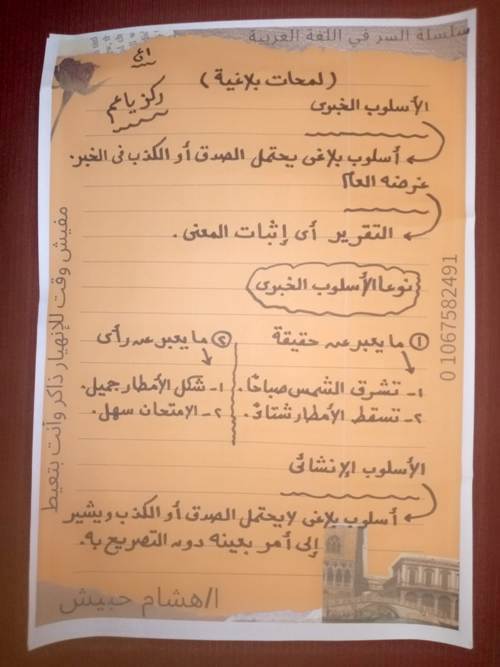 سلسلة السر في اللغة العربية
(لمحات بلاغية)
ركز ياعم
الأسلوب الخبرى
أسلوب بلاغى يحتمل الصدق أو الكذب فى الخبر.
غرضه العام
التقرير أى إثبات المعنى.
نوعا الأسلوب الخبرى
① ما يعبر عن حقيقة
١- تشرق الشمس صباحًا.
٢- تسقط الأمطار شتاءً.
② ما يعبر عن رأى
١- شكل الأمطار جميل.
٢- الامتحان سهل.
الأسلوب الإنشائى
أسلوب بلاغى لا يحتمل الصدق أو الكذب ويشير
إلى أمر بعينه دون التصريح به.
ا/هشام حبيش
مفيش وقت للإنهيار ذاكر وأنت بتعيط
0 1067582491